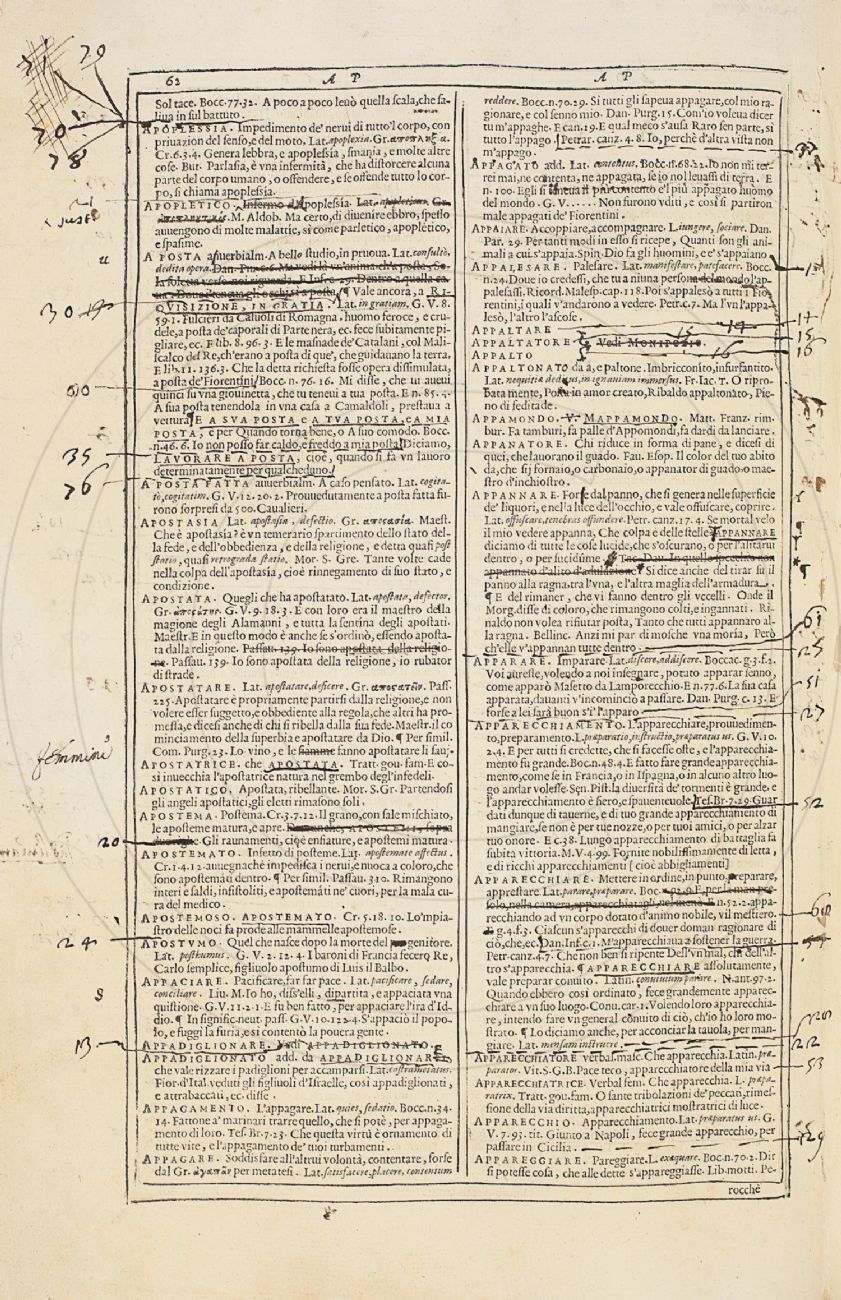 62 A P A P
Sol tace. Bocc. 77. 32. A poco a poco leuò quella scala, che sa-
liua in sul battuto.
APOPLESSIA. Impedimento de' nerui di tutto'l corpo, con
priuazion del senso, e del moto. Lat. apoplexia. Gr.
Cr. 6. 3. 4. Genera lebbra, e apoplessia, smania, e molte altre
cose. But. Parlasia, è vna infermità, che ha distorcere alcuna
parte del corpo vmano, o offendere, e se offende tutto lo cor-
po, si chiama apoplessia.
APOPLETICO. Infermo d'Apoplessia. Lat.
M. Aldob. Ma certo, di diuenire ebbro, spesso
auuengono di molte malattie, sì come parletico, apopletico,
e spasime.
A POSTA auuerbialm. A bello studio, in pruoua. Lat. consultò,
dedita opera.
Vale ancora, a RI-
QVISIZIONE, IN GRATIA. Lat. in gratiam. G. V. 8.
59. 1. Fulcieri da Caluoli di Romagna, huomo feroce, e cru-
dele, a posta de' caporali di Parte nera, ec. fece subitamente pi-
gliare, ec. E lib. 8. 96. 3. E le masnade de' Catalani, col Mali-
scalco del Re, ch'erano a posta di que', che guidauano la terra.
E lib. 11. 136. 3. Che la detta richiesta fosse opera dissimulata,
a posta de' Fiorentini Bocc. n. 76. 16. Mi disse, che tu aueui
quinci su vna giouinetta, che tu teneui a tua posta. E n. 85. 4.
A sua posta tenendola in vna casa a Camaldoli, prestaua a
vettura ¶ E A SVA POSTA e A TVA POSTA, e A MIA
POSTA, è per Quando torna bene, o A suo comodo. Bocc.
n. 46. 6. Io non posso far caldo, e freddo a mia posta Diciamo,
LAVORARE A POSTA, cioè, quando si fa vn lauoro
determinatamente per qualcheduno.
A POSTA FATTA auuerbialm. A caso pensato. Lat. cogita-
tò, cogitatim. G. V. 12. 20. 2. Prouuedutamente a posta fatta fu-
rono sorpresi da 500. Caualieri.
APOSTASIA Lat. apostasia, defectio. Gr. ἀποςασία. Maest.
Che è apostasia? è vn temerario spartimento dello stato del-
la fede, e dell'obbedienza, e della religione, e detta quasi post
statio, quasi retrograda statio. Mor. S. Gre. Tante volte cade
nella colpa dell'apostasìa, cioè rinnegamento di suo stato, e
condizione.
APOSTATA. Quegli che ha apostatato. Lat. apostata, defector.
Gr. ἀποςάτης. G. V. 9. 18. 3. E con loro era il maestro della
magione degli Alamanni, e tutta la sentina degli apostati.
Maestr. E in questo modo è anche se s'ordinò, essendo aposta-
ta dalla religione. Passau. 139. Io sono apostata della religio-
ne. Passau. 139. Io sono apostata della religione, io rubator
di strade.
APOSTATARE. Lat. apostatare, deficere. Gr. Pass.
225. Apostatare è propriamente partirsi dalla religione, e non
volere esser suggetto, e obbediente alla regola, che altri ha pro-
messa, e dicesi anche di chi si ribella dalla sua fede. Maestr. il co
minciamento della superbia e apostatare da Dio. ¶ Per simil.
Com. Purg. 23. Lo vino, e le fiamme fanno apostatare li sauj.
femmine
APOSTATRICE. che APOSTATA. Tratt. gou. fam. E co-
sì inuecchia l'apostatrice natura nel grembo degl'infedeli.
APOSTATICO. Apostata, ribellante. Mor. S. Gr. Partendosi
gli angeli apostatici, gli eletti rimasono soli.
APOSTEMA. Postema. Cr. 3. 7. 12. Il grano, con sale mischiato,
le aposteme matura, e apre.
Gli raunamenti, cioè enfiature, e apostemi matura.
APOSTEMATO. Infetto di posteme. Lat. apostemate affectus.
Cr. 1. 4. 12. auuegnachè impedisca i nerui, e nuoca a coloro, che
sono apostemati dentro. ¶ Per simil. Passau. 310. Rimangono
interi e saldi, infistoliti, e apostemati ne' cuori, per la mala cu-
ra del medico.
APOSTEMOSO. APOSTEMATO. Cr. 5. 18. 10. Lo'mpia-
stro delle noci fa prode alle mammelle apostemose.
APOSTVMO. Quel che nasce dopo la morte del genitore.
Lat. posthumus. G. V. 2. 12. 4. I baroni di Francia fecero Re,
Carlo semplice, figliuolo apostumo di Luis il Balbo.
APPACIARE. Pacificare, far far pace. Lat. pacificare, sedare,
conciliare. Liu. M. Io ho, diss'elli, dipartita, e appaciata vna
quistione. G. V. 11. 2. 1. E fu ben fatto, per appaciare l'ira d'Id-
dio. ¶ In signific. neut. pass. G. V. 10. 122. 4. S'appaciò il popo-
lo, e fuggì la furia, e si contentò la pouera gente.
APPADIGLIONARE. Vedi APPADIGLIONATO.
APPADIGLIONATO add. da APPADIGLIONARE,
che vale rizzare i padiglioni per accamparsi. Lat. castrametatus.
Fior. d'Ital. veduti gli figliuoli d'Israelle, così appadiglionati,
e attrabaccati, ec. disse.
APPAGAMENTO. L'appagare. Lat. quies, sedatio. Bocc. n. 34.
14. Fattone a' marinari trarre quello, che si potè, per appaga-
mento di loro. Tes. Br. 7. 23. Che questa virtù è ornamento di
tutte vite, e l'appagamento de' tuoi turbamenti.
APPAGARE. Soddisfare all'altrui volontà, contentare, forse
dal Gr. ἀγαπᾶν per metatesi. Lat. satisfacere, placere, contentum
reddere. Bocc. n. 70. 29. Si tutti gli sapeua appagare, col mio ra-
gionare, e col senno mio. Dan. Purg. 15. Com'io voleua dicer
tu m'appaghe. E can. 19. E qual meco s'ausa Raro sen parte, si
tutto l'appago. Petrar. canz. 4. 8. Io, perchè d'altra vista non
m'appago.
APPAGATO add. Lat. contentus. Bocc. n. 68. 22. Io non mi ter-
rei mai, ne contenta, ne appagata, se io nol leuassi di terra. E
n. 100. Egli si teneua il più contento e'l più appagato huomo
del mondo. G. V. ...... Non furono vditi, e così si partiron
male appagati de' Fiorentini.
APPAIARE. Accoppiare, accompagnare. L. iungere, sociare. Dan.
Par. 29. Per tanti modi in esso si ricepe, Quanti son gli ani-
mali a cui s'appaja. Spin. Dio fa gli huomini, e e' s'appaiano
APPALESARE. Palesare. Lat. manifestare, patefacere. Bocc.
n. 24. Doue io credessi, che tu a niuna persona del mondo l'ap-
palesassi. Ricord. Malesp. cap. 118. Poi s'appalesò a tutti i Fio-
rentini, i quali v'andarono a vedere. Petr. c. 7. Ma l'vn l'appa-
lesò, l'altro l'ascose.
APPALTARE
APPALTATORE Vedi MONIPOLIO.
APPALTO
APPALTONATO da à, e paltone. Imbricconito, infurfantito.
Lat. nequitia deditus, in ignauiam immersus. Fr. Iac. T. O ripro-
bata mente, Posta in amor creato, Ribaldo appaltonato, Pie-
no di feditade.
APPAMONDO. V. MAPPAMONDO. Matt. Franz. rim.
bur. Fa tamburi, fa palle d'Appomondi, fa dardi da lanciare.
APPANATORE. Chi riduce in forma di pane, e dicesi di
quei, che lauorano il guado. Fau. Esop. Il color del tuo abito
da, che sij fornaio, o carbonaio, o appanator di guado, o mae-
stro d'inchiostro.
APPANNARE. Forse dal panno, che si genera nelle superficie
de' liquori, e nella luce dell'occhio, e vale offuscare, coprire.
Lat. offuscare, tenebras offundere. Petr. canz. 17. 4. Se mortal velo
il mio vedere appanna, Che colpa è delle stelle APPANNARE
diciamo di tutte le cose lucide, che s'oscurano, o per l'alitarui
dentro, o per sucidume
Si dice anche del tirar su il
panno alla ragna, tra l'vna, e l'altra maglia dell'armadura.
¶ E del rimaner, che vi fanno dentro gli vccelli. Onde il
Morg. disse di coloro, che rimangono colti, e ingannati. Ri-
naldo non volea rifiutar posta, Tanto che tutti appannaro al-
la ragna. Bellinc. Anzi mi par di mosche vna moria, Però
ch'elle v'appannan tutte dentro.
APPARARE. Imparare. Lat. discere, addiscere. Boccac. g. 3. f. 2.
Voi aureste, volendo a noi insegnare, potuto apparar senno,
come apparò Masetto da Lamporecchio E n. 77. 6. La sua casa
apparata, dauanti v'incominciò a passare. Dan. Purg. c. 13. E
forse a lei sarà buon s'i' l'apparo
APPARECCHIAMENTO. L'apparecchiare, prouuedimen-
to, preparamento. L. præparatio, instructio, præparatus us. G. V. 10.
2. 4. E per tutti si credette, che si facesse oste, e l'apparecchia-
mento fu grande. Boc. n. 48. 4. E fatto fare grande apparecchia-
mento, come se in Francia, o in Ispagna, o in alcuno altro luo-
go andar volesse. Sen. Pist. la diuersità de' tormenti è grande. e
l'apparecchiamento è fiero, e spauenteuole. Tes. Br. 7. 29. Guar
dati dunque di tauerne, e di tuo grande apparecchiamento di
mangiare, se non è per tue nozze, o per tuoi amici, o per alzar
tuo onore. E c. 38. Lungo apparecchiamento di battaglia fa
subita vittoria. M. V. 4. 99. Fornite nobilissimamente di letta,
e di ricchi apparecchiamenti [cioè abbigliamenti]
APPARECCHIARE. Mettere in ordine, in punto, preparare,
apprestare. Lat. parare, præparare. Boc.
E n. 52. 2. appa-
recchiando ad vn corpo dotato d'animo nobile, vil mestiero.
g. 4. f. 3. Ciascun s'apparecchi di douer doman ragionare di
ciò, che, ec. Dan. Inf. c. 2. M'apparecchiaua a sostener la guerra.
Petr. canz. 4. 7. Che non ben si ripente Dell'vn mal, chi dell'al-
tro s'apparecchia. ¶ APPARECCHIARE assolutamente,
vale preparar conuito. Latin. conuiuium parare. N. ant. 97. 2.
Quando ebbero così ordinato, fece grandemente apparec-
chiare a vn suo luogo. Conu. car. 1. Volendo loro apparecchia-
re, intendo fare vn general conuito di ciò, ch'io ho loro mo-
strato. ¶ Lo diciamo anche, per acconciar la tauola, per man-
giare. Lat. mensam instruere.
APPARECCHIATORE verbal. masc. Che apparecchia. Latin. præ-
parator. Vit. S. G. B. Pace teco, apparecchiatore della mia via
APPARECCHIATRICE. Verbal fem. Che apparecchia. L. præpa-
ratrix. Tratt. gou. fam. O sante tribolazioni de' peccati, rimes-
sione della via diritta, apparecchiatrici mostratrici di luce.
APPARECCHIO. Apparecchiamento. Lat. præparatus us. G.
V. 7. 93. tit. Giunto a Napoli, fece grande apparecchio, per
passare in Cicilia.
APPAREGGIARE. Pareggiare. L. exæquare. Bc. n. 70. 2. Dir
si potesse cosa, che alle dette s'appareggiasse. Lib. motti. Pe-
rocchè